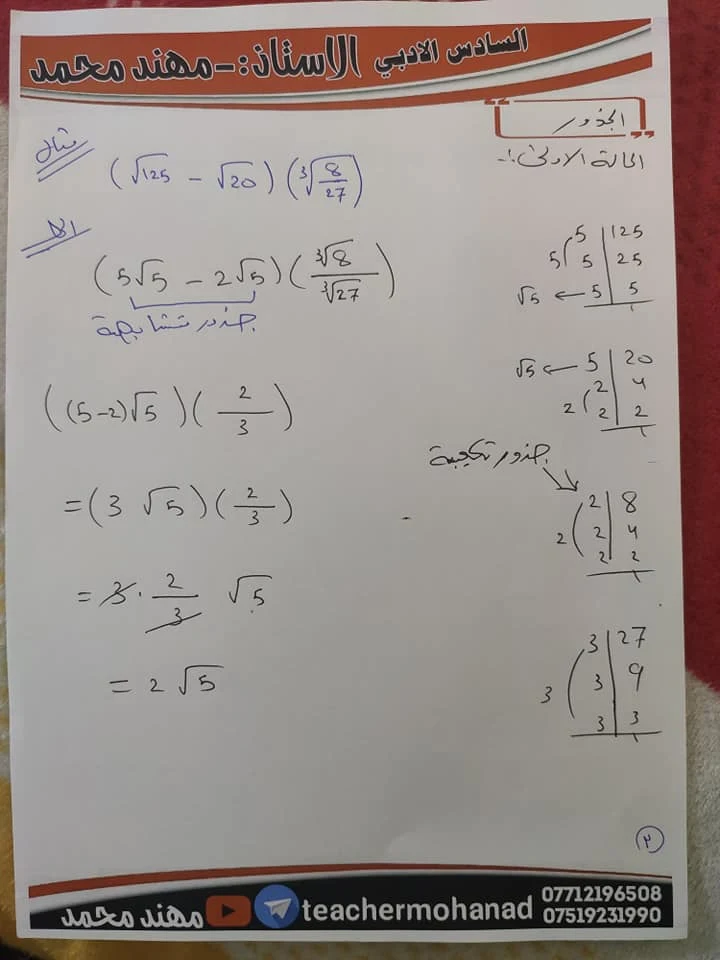 السادس الادبي الاستاذ:- مهند محمد
الجذور
الحالة الاولى:-
مثال
(√125 − √20) (∛(8/27))
الحل
(5√5 − 2√5) (∛8/∛27)
جذور متشابهة
((5−2)√5) (2/3)
= (3 √5) (2/3)
= 3 · 2/3 √5
= 2 √5
5 | 125
5 ( 5 | 25
√5 ← 5 | 5
1
√5 ← 5 | 20
2 | 4
2 ( 2 | 2
1
جذور تكعيبية
2 | 8
2 ( 2 | 4
2 | 2
1
3 | 27
3 ( 3 | 9
3 | 3
1
٢
مهند محمد teachermohanad 07712196508
07519231990